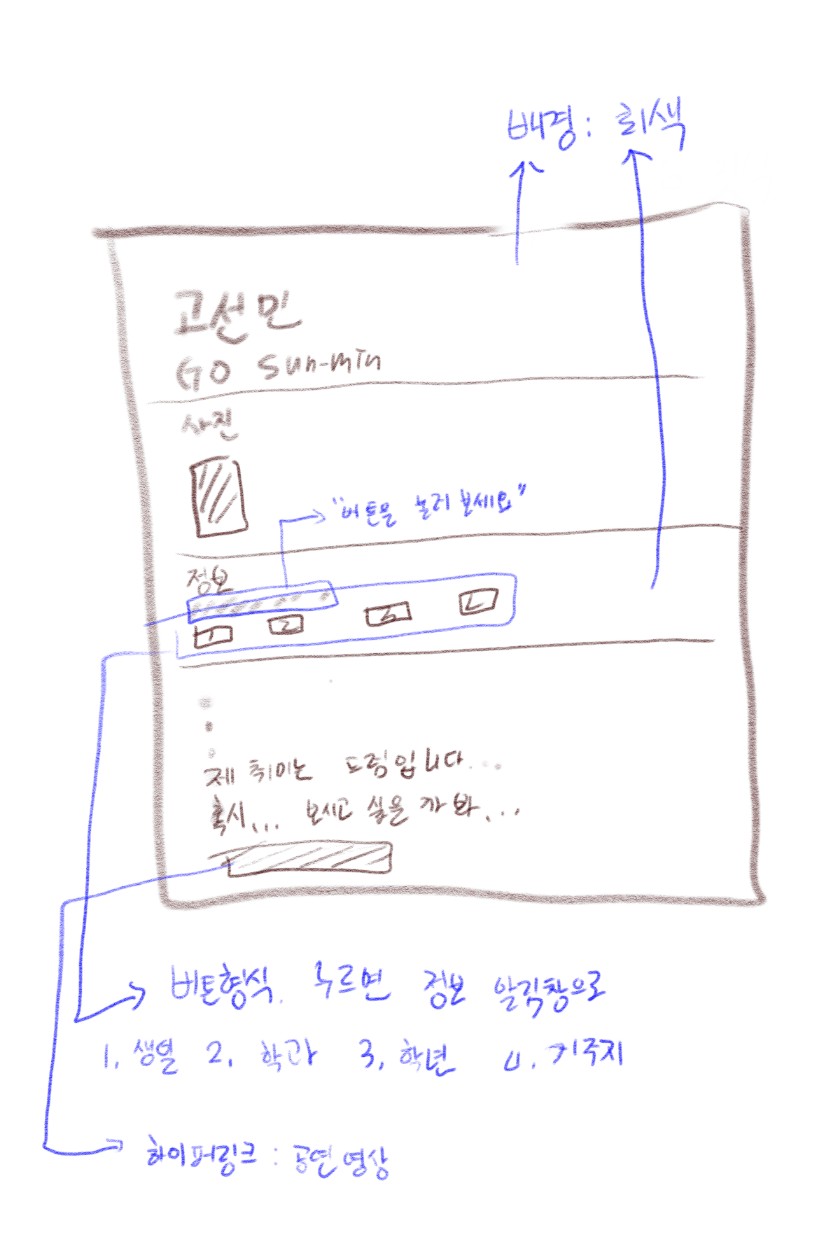 배경: 회색
고선민
GO Sun-min
사진
"버튼을 눌러보세요"
정보
1 2 3 4
제 취미는 드럼입니다...
혹시... 보시고 싶을까봐...
버튼형식. 누르면 정보 알림창으로
1. 생일 2. 학과 3. 학년 4. 거주지
하이퍼링크 : 공연영상